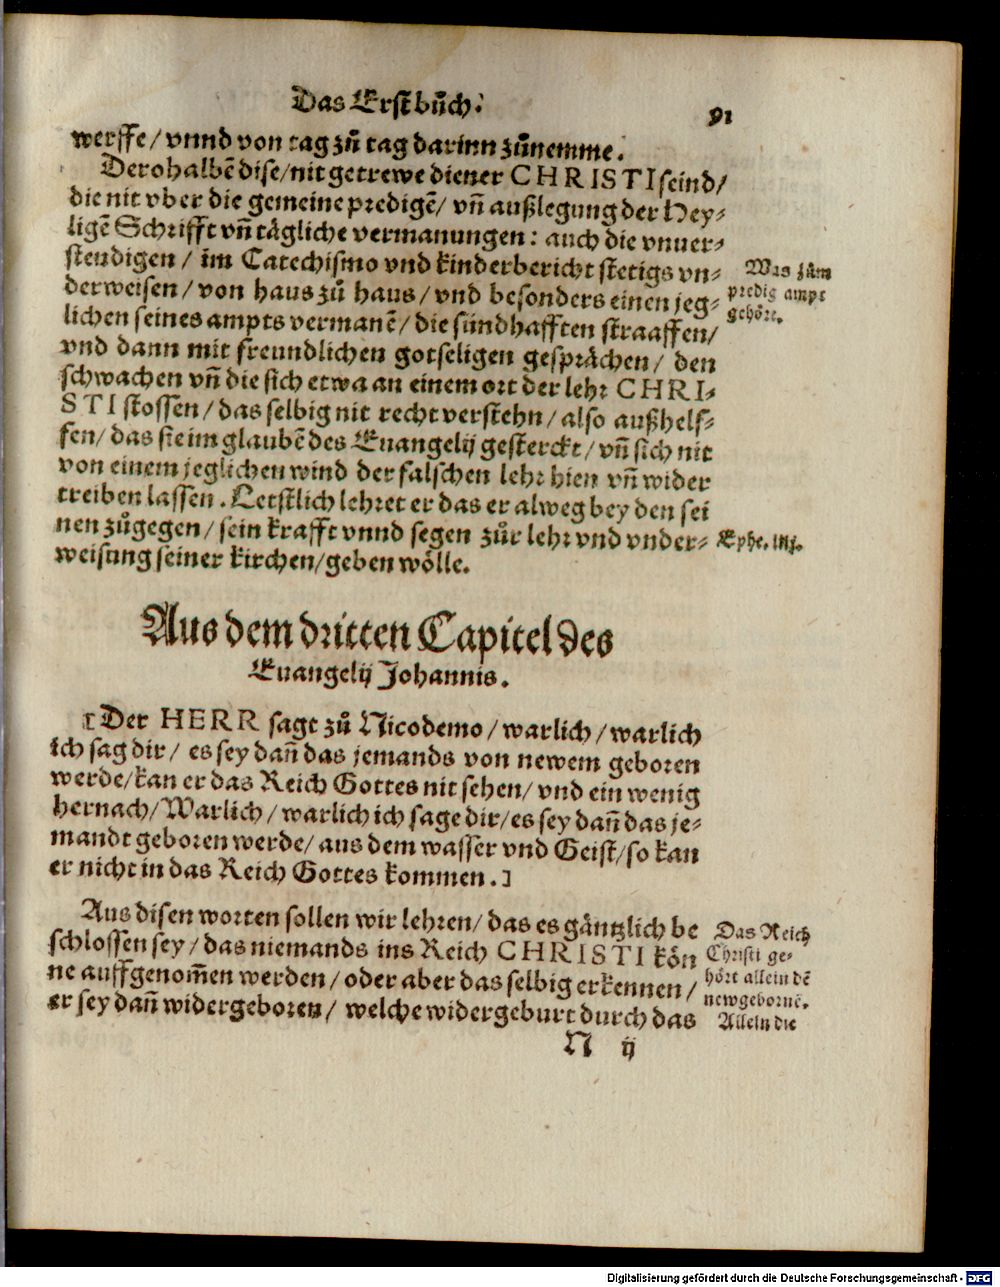 Das Erst bůch.
91
werffe/ vnnd von tag zů tag darinn zůnemme.
Derohalbē dise/ nit getrewe diener CHRISTI seind/
die nit vber die gemeine predigē/ vñ außlegung der Hey-
ligē Schrifft vñ tägliche vermanungen: auch die vnuer-
stendigen/ im Catechismo vnd kinderbericht stetigs vn-
derweisen/ von haus zů haus/ vnd besonders einen jeg-
lichen seines ampts vermanē/ die sündhafften straaffen/
vnd dann mit freundlichen gotseligen gesprächen/ den
schwachen vñ die sich etwa an einem ort der lehr CHRI-
STI stossen/ das selbig nit recht verstehn/ also außhelf-
fen/ das sie im glaubē des Euangelij gesterckt/ vñ sich nit
von einem jeglichen wind der falschen lehr hien vñ wider
treiben lassen. Letstlich lehret er das er alweg bey den sei
nen zůgegen/ sein krafft vnnd segen zůr lehr vnd vnder-
weisung seiner kirchen/ geben wölle.
Was zům
predig ampt
gehöre.
Ephe. iiij.
Aus dem dritten Capitel des
Euangelij Johannis.
[Der HERR sagt zů Nicodemo/ warlich/ warlich
ich sag dir/ es sey dañ das jemands von newem geboren
werde/ kan er das Reich Gottes nit sehen/ vnd ein wenig
hernach/ Warlich/ warlich ich sage dir/ es sey dañ das je-
mandt geboren werde/ aus dem wasser vnd Geist/ so kan
er nicht in das Reich Gottes kommen.]
Aus disen worten sollen wir lehren/ das es gäntzlich be
schlossen sey/ das niemands ins Reich CHRISTI kön
ne auffgenom̄en werden/ oder aber das selbig erkennen/
er sey dañ widergeboren/ welche widergeburt durch das
Das Reich
Christi ge-
hört allein dē
newgebornē.
Allein die
N ij
Digitalisierung gefördert durch die Deutsche Forschungsgemeinschaft - DFG